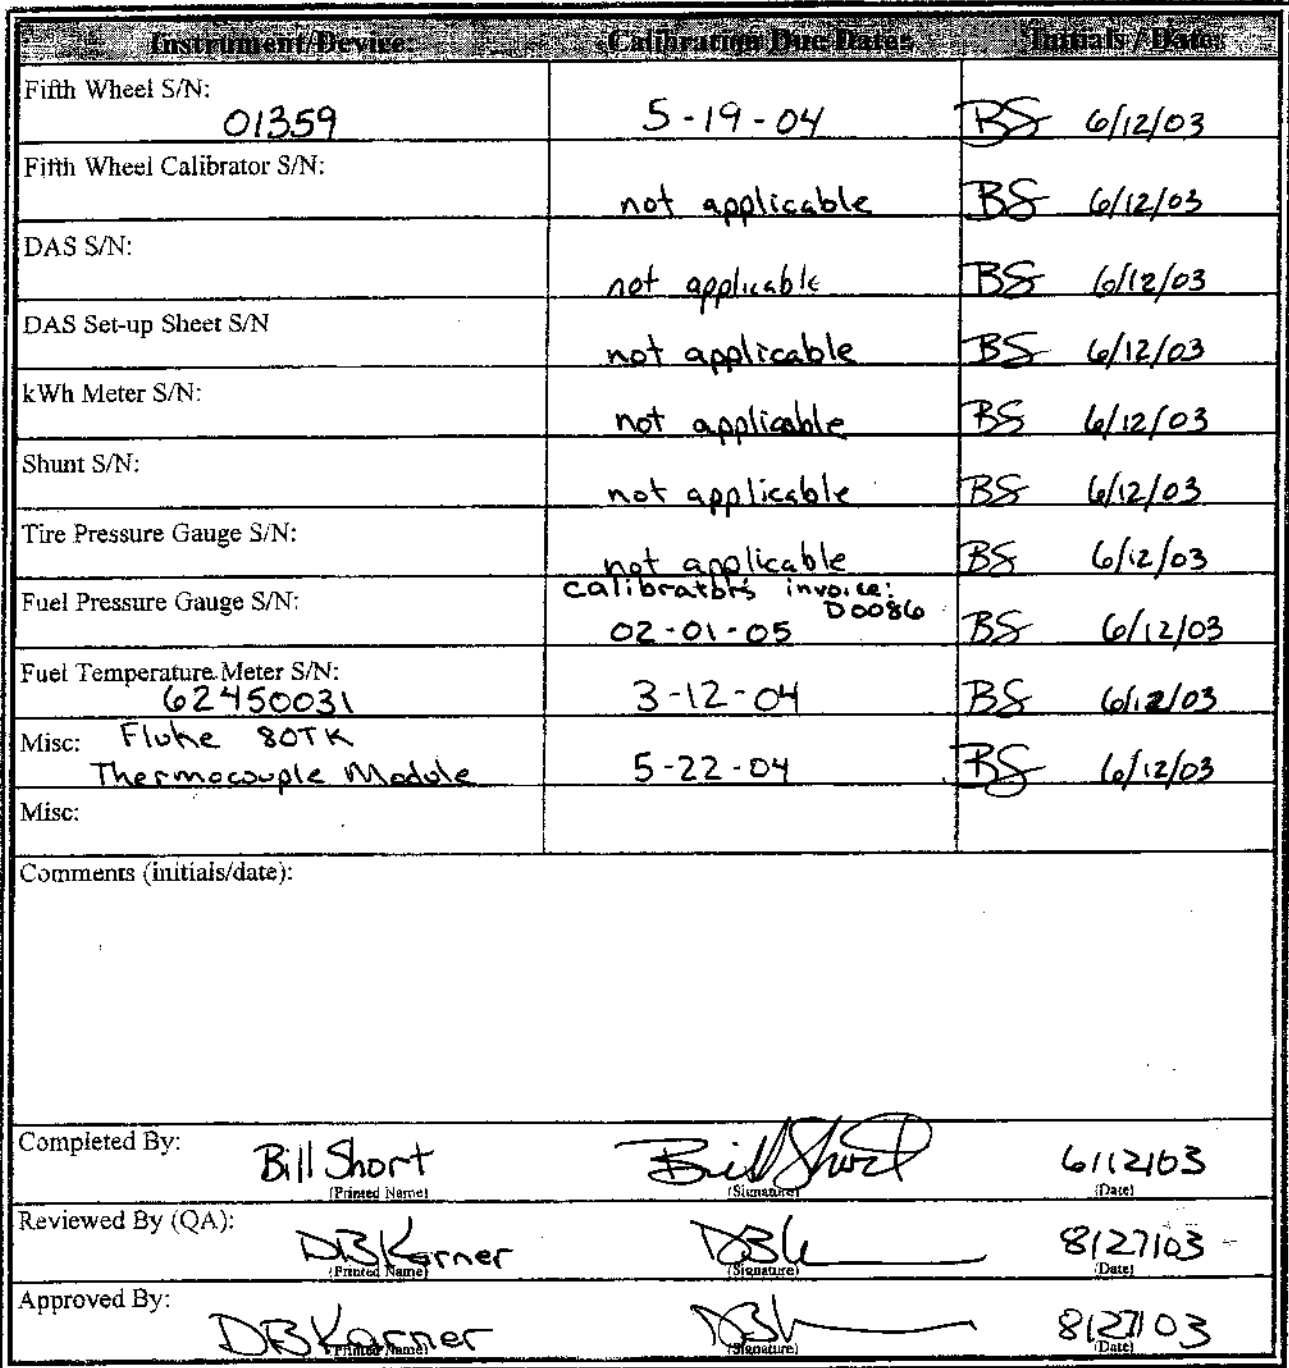 Instrument/Device: Calibration Due Dates Initials / Dates
Fifth Wheel S/N:
01359 5-19-04 BS 6/12/03
Fifth Wheel Calibrator S/N:
not applicable BS 6/12/03
DAS S/N:
not applicable BS 6/12/03
DAS Set-up Sheet S/N
not applicable BS 6/12/03
kWh Meter S/N:
not applicable BS 6/12/03
Shunt S/N:
not applicable BS 6/12/03
Tire Pressure Gauge S/N:
not applicable BS 6/12/03
Fuel Pressure Gauge S/N: calibrator's invoice:
D0086
02-01-05 BS 6/12/03
Fuel Temperature Meter S/N:
62450031 3-12-04 BS 6/12/03
Misc: Fluke 80TK
Thermocouple Module 5-22-04 BS 6/12/03
Misc:
Comments (initials/date):
Completed By: Bill Short Bill Short 6/12/03
(Printed Name) (Signature) (Date)
Reviewed By (QA): DB Karner DBK 8/27/03
(Printed Name) (Signature) (Date)
Approved By: DB Karner DBK 8/27/03
(Printed Name) (Signature) (Date)